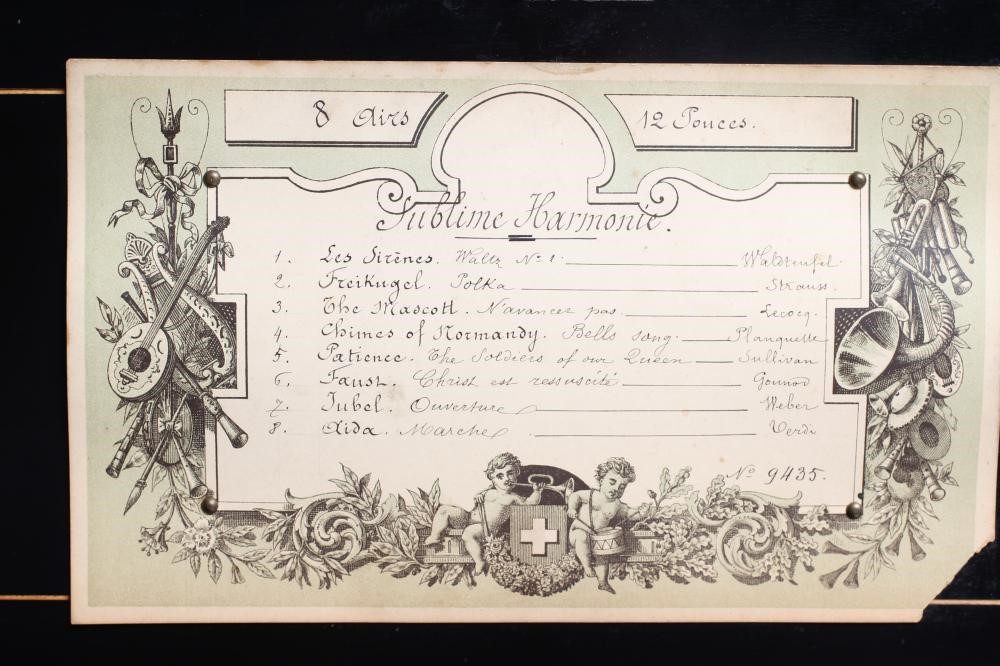 8 Airs
12 Pouces.
Sublime Harmonie.
1. Les Sirènes. Waltz No 1. Waldteufel.
2. Freikugel. Polka Strauss.
3. The Mascott. N'avancez pas. Lecocq.
4. Chimes of Normandy. Bells song. Planquette
5. Patience. The Soldiers of our Queen Sullivan
6. Faust. Christ est ressuscité Gounod
7. Jubel. Ouverture Weber
8. Aida. Marche Verdi
No 9435.